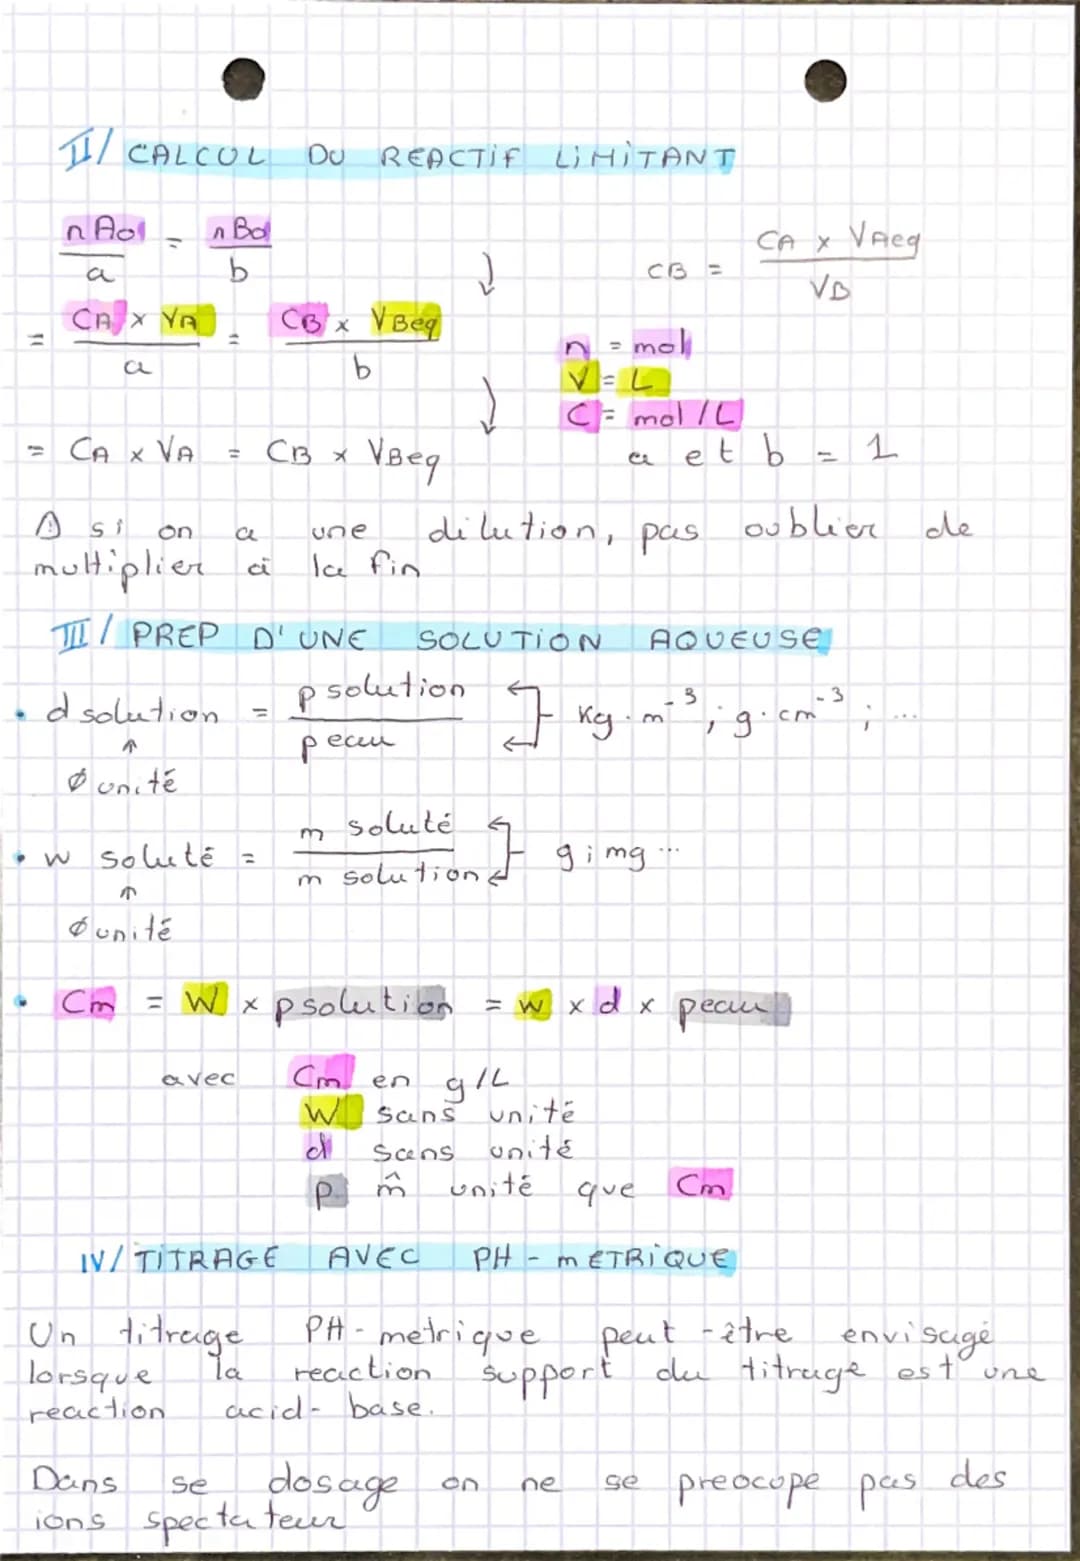 II/ CALCUL DU REACTIF LIMITANT
nA0/a = nB0/b
CB = CA x VAeq / VB
= CA x VA / a = CB x VBeq / b
n = mol
V = L
C = mol/L
= CA x VA = CB x VBeq
a et b = 1
⚠ si on a une dilution, pas oublier de
multiplier à la fin
III/ PREP D'UNE SOLUTION AQUEUSE
• d solution = ρ solution / ρ eau ] Kg.m⁻³ ; g.cm⁻³ ; ...
↑
Ø unité
• w soluté = m soluté / m solution ] g ; mg ...
↑
Ø unité
• Cm = W x ρsolution = w x d x ρeau
avec Cm en g/L
W sans unité
d sans unité
ρ m̂ unité que Cm
IV/ TITRAGE AVEC PH - METRIQUE
Un titrage PH - metrique peut -être envisagé
lorsque la reaction support du titrage est une
reaction acid- base.
Dans se dosage on ne se preocupe pas des
ions spectateur